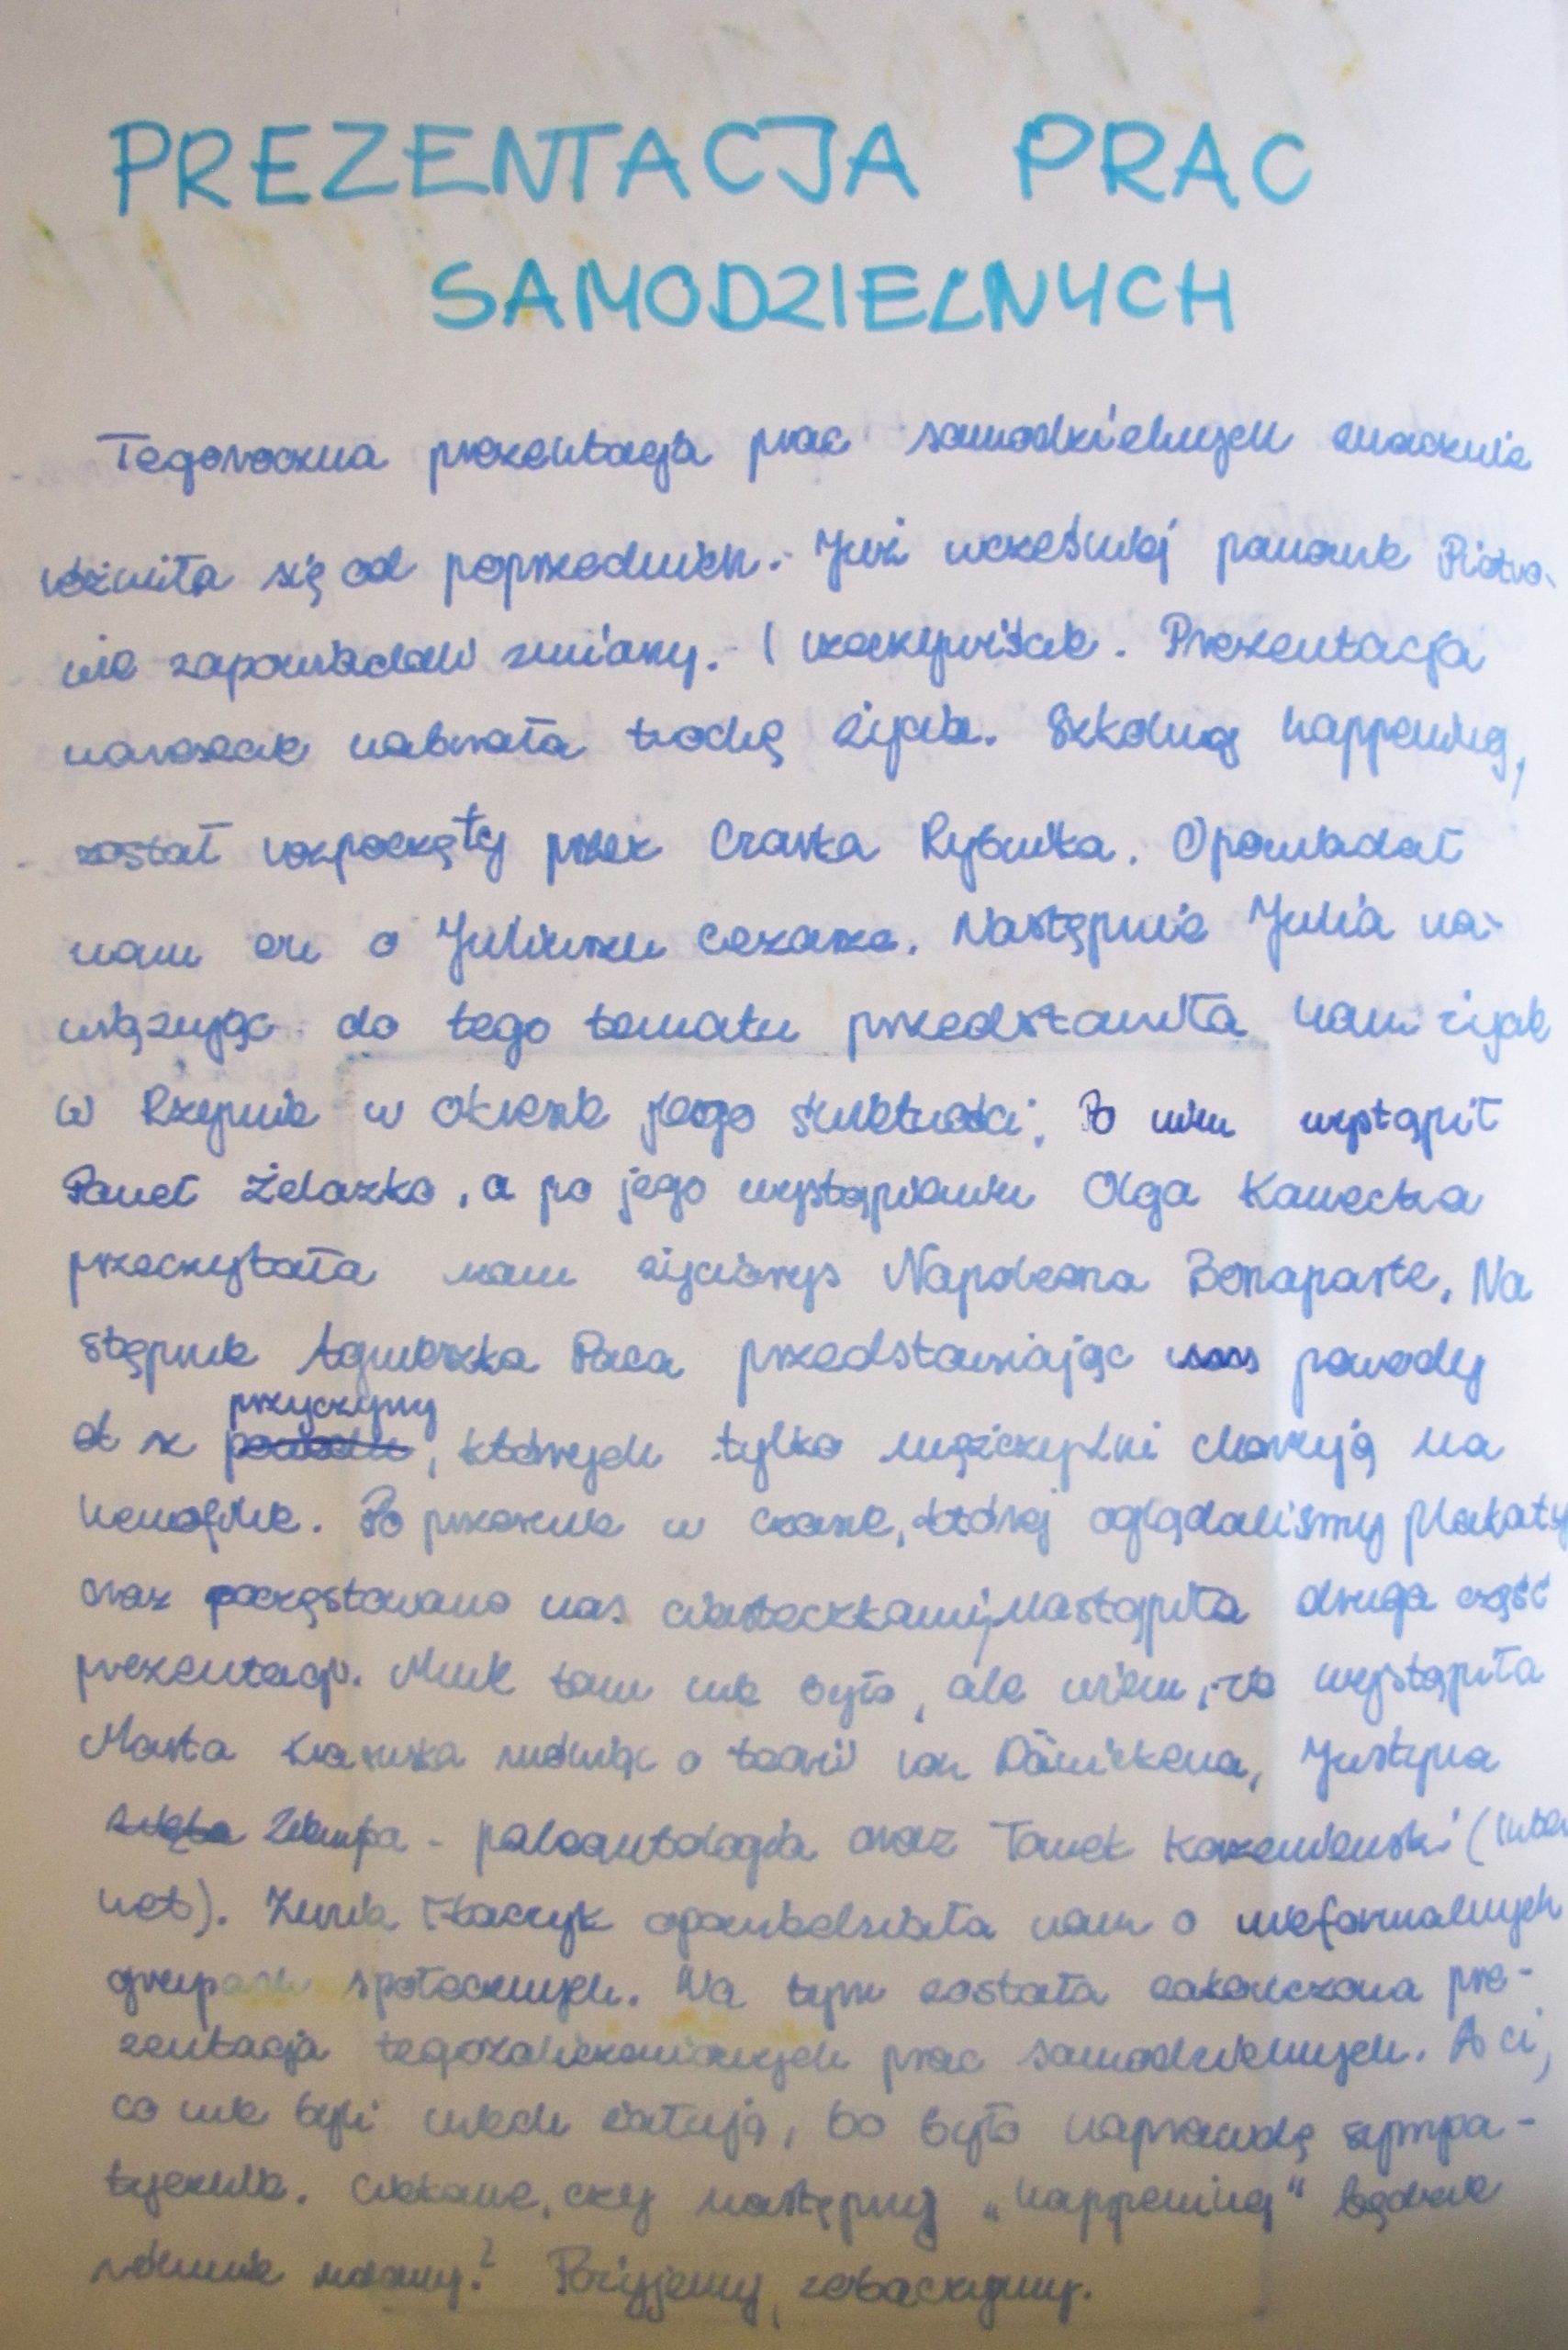 PREZENTACJA PRAC
SAMODZIELNYCH
Tegoroczna prezentacja prac samodzielnych znacznie
różniła się od poprzednich. Już wcześniej panowie Piotro-
wie zapowiadali zmiany. I rzeczywiście. Prezentacja
nareszcie nabrała trochę życia. Szkolny happening,
został rozpoczęty przez Czarka Rybnika. Opowiadał
nam on o Juliuszu Cezarze. Następnie Julia na-
wiązując do tego tematu przedstawiła nam życie
w Rzymie w okresie jego świetności. Po nim wystąpił
Paweł Żelazko, a po jego wystąpieniu Olga Kawecka
przeczytała nam życiorys Napoleona Bonaparte. Na
stępnie Agnieszka Paca przedstawiając powody
przyczyny
których tylko mężczyźni chorują na
hemofilię. Po przerwie w czasie, której oglądaliśmy plakaty
oraz poczęstowano nas ciasteczkami, nastąpiła druga część
prezentacji. Mnie tam nie było, ale wiem, że wystąpiła
Marta mówiąc o teorii von Dänikena, Justyna
- paleontologia oraz Tomek (inter
net). Tkaczyk opowiedziała nam o nieformalnych
grupach społecznych. Na tym została zakończona pre-
zentacja tegorocznych prac samodzielnych. A ci,
co nie byli niech żałują, bo było naprawdę sympa-
tycznie. Ciekawe, czy następny „happening" będzie
równie udany? Pożyjemy, zobaczymy.